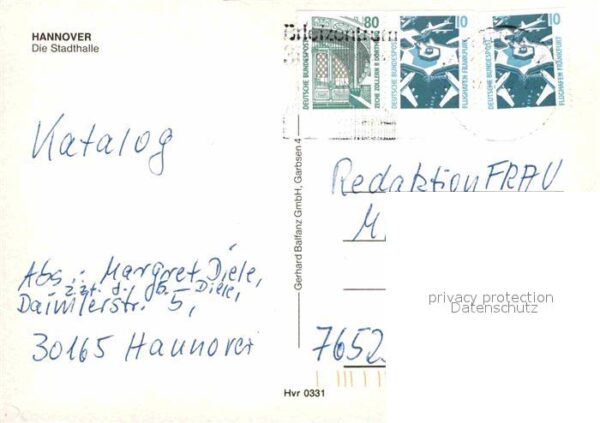 HANNOVER
Die Stadthalle
Briefzentrum
80
DEUTSCHE BUNDESPOST
ZECHE ZOLLERN II DORTMUND
10
DEUTSCHE BUNDESPOST
FLUGHAFEN FRANKFURT
10
DEUTSCHE BUNDESPOST
FLUGHAFEN FRANKFURT
Katalog
Abs.: Margret Diele,
Diele,
Daimlerstr. 5,
30165 Hannover
Gerhard Balfanz GmbH, Garbsen 4
Hvr 0331
Redaktion FRAU
M
7652
privacy protection
Datenschutz